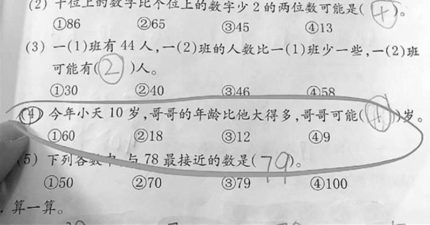 (2) 十位上的数字比个位上的数字少2的两位数可能是( )。
①86 ②65 ③45 ④13
(3) 一(1)班有44人,一(2)班的人数比一(1)班少一些,一(2)班
可能有(2)人。
①30 ②40 ③46 ④58
(4) 今年小天10岁,哥哥的年龄比他大得多,哥哥可能( )岁。
①60 ②18 ③12 ④9
(5) 下列各数中,与78最接近的数是(79)。
①50 ②70 ③79 ④100
算一算。